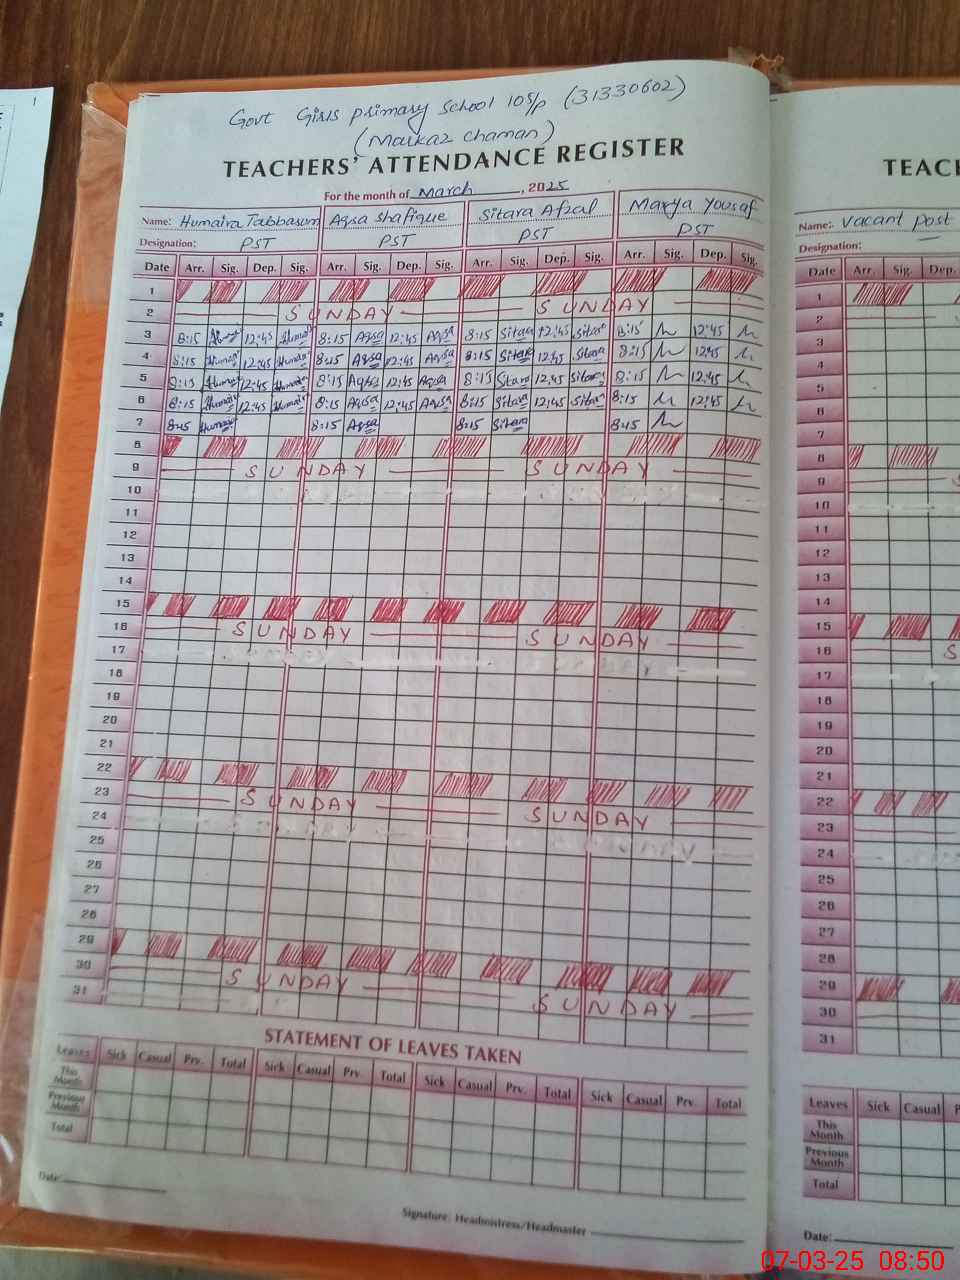 Govt Girls primary school 105/p (31330602)
(Markaz chaman)
TEACHERS' ATTENDANCE REGISTER
For the month of March, 2025
Name: Humaira Tabbasum Aqsa shafique Sitara Afzal Marya Yousaf
Designation: PST PST PST PST
Date Arr. Sig. Dep. Sig. Arr. Sig. Dep. Sig. Arr. Sig. Dep. Sig. Arr. Sig. Dep. Sig.
1
2 SUNDAY SUNDAY
3 8:15 Humair 12:45 Humair 8:15 Aqsa 12:45 Aqsa 8:15 Sitara 12:45 Sitara 8:15 12:45
4 8:15 Humair 12:45 Humair 8:15 Aqsa 12:45 Aqsa 8:15 Sitara 12:45 Sitara 8:15 12:45
5 8:15 Humair 12:45 Humair 8:15 Aqsa 12:45 Aqsa 8:15 Sitara 12:45 Sitara 8:15 12:45
6 8:15 Humair 12:45 Humair 8:15 Aqsa 12:45 Aqsa 8:15 Sitara 12:45 Sitara 8:15 12:45
7 8:15 Humair 8:15 Aqsa 8:15 Sitara 8:15
8
9 SUNDAY SUNDAY
10
11
12
13
14
15
16 SUNDAY SUNDAY
17
18
19
20
21
22
23 SUNDAY SUNDAY
24
25
26
27
28
29
30 SUNDAY SUNDAY
31
STATEMENT OF LEAVES TAKEN
Leaves Sick Casual Prv. Total Sick Casual Prv. Total Sick Casual Prv. Total Sick Casual Prv. Total
This Month
Previous Month
Total
Date:
Signature: Headmistress/Headmaster
TEACH
Name: Vacant post
Designation:
Date Arr. Sig. Dep.
1
2
3
4
5
6
7
8
9 S
10
11
12
13
14
15
16 S
17
18
19
20
21
22
23
24
25
26
27
28
29
30
31
Leaves Sick Casual P
This Month
Previous Month
Total
Date:
07-03-25 08:50